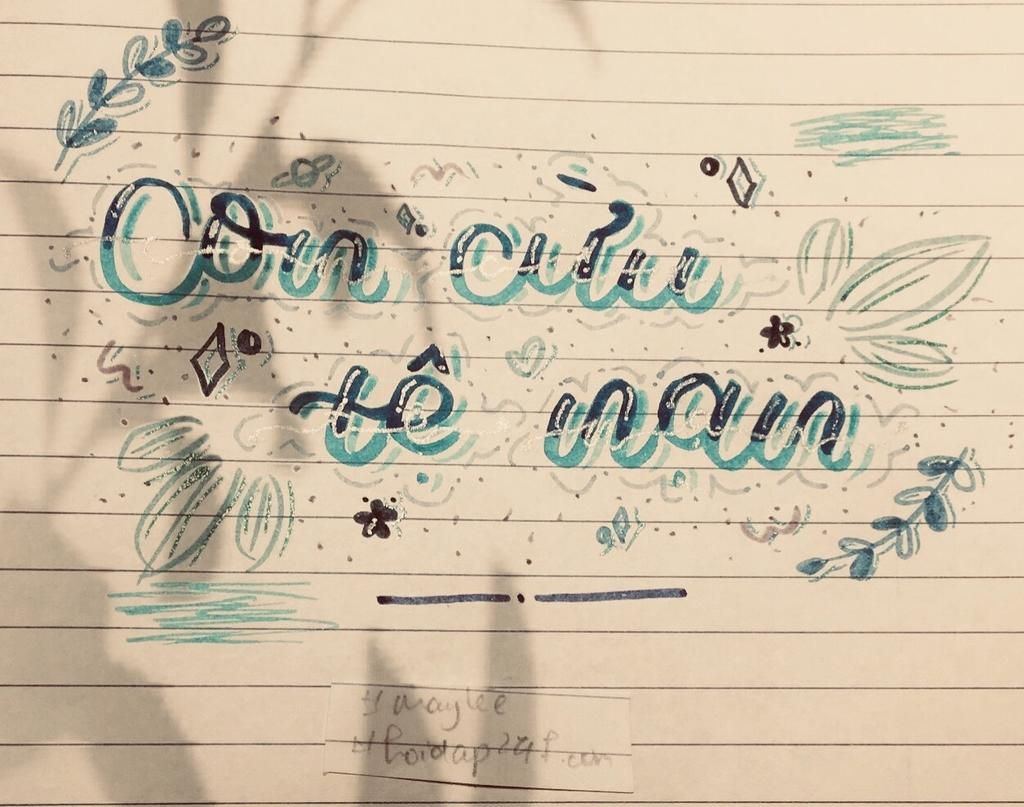 Con cừu
tê nan
# maylee
# hoidap247.com